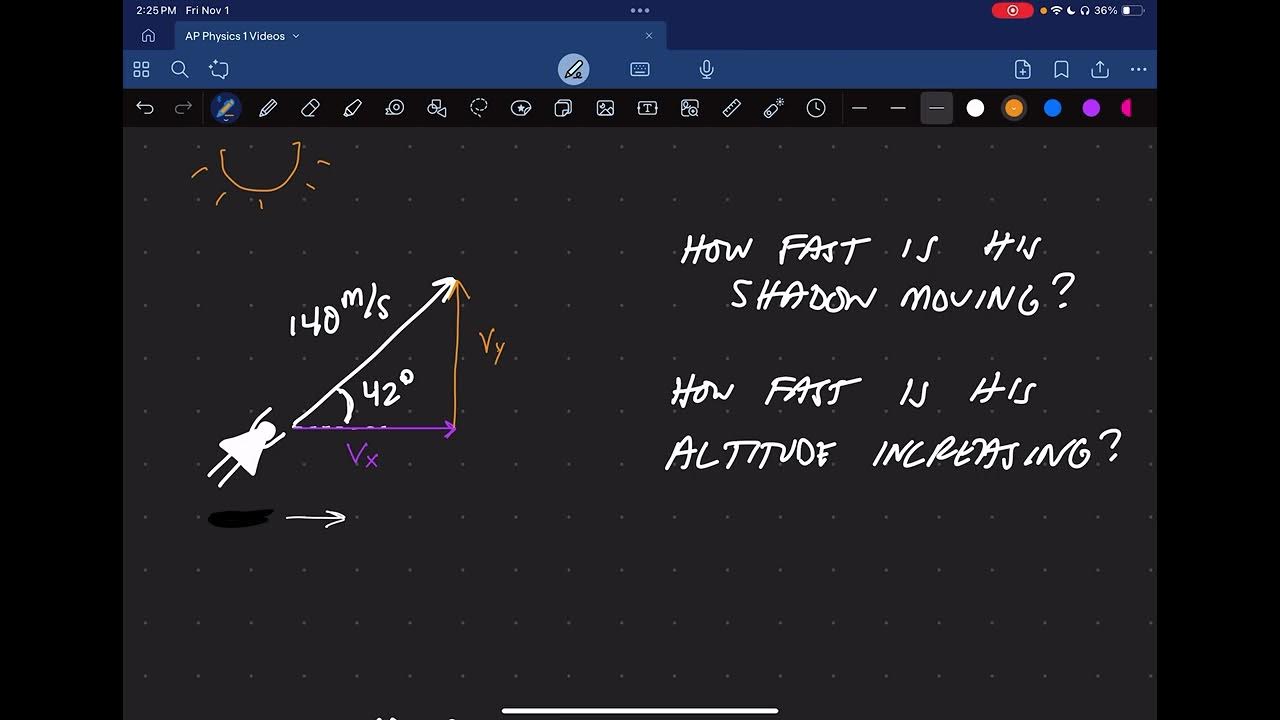 2:25 PM Fri Nov 1
36%
AP Physics 1 Videos
140 m/s
42°
Vy
Vx
HOW FAST IS HIS
SHADOW MOVING?
HOW FAST IS HIS
ALTITUDE INCREASING?